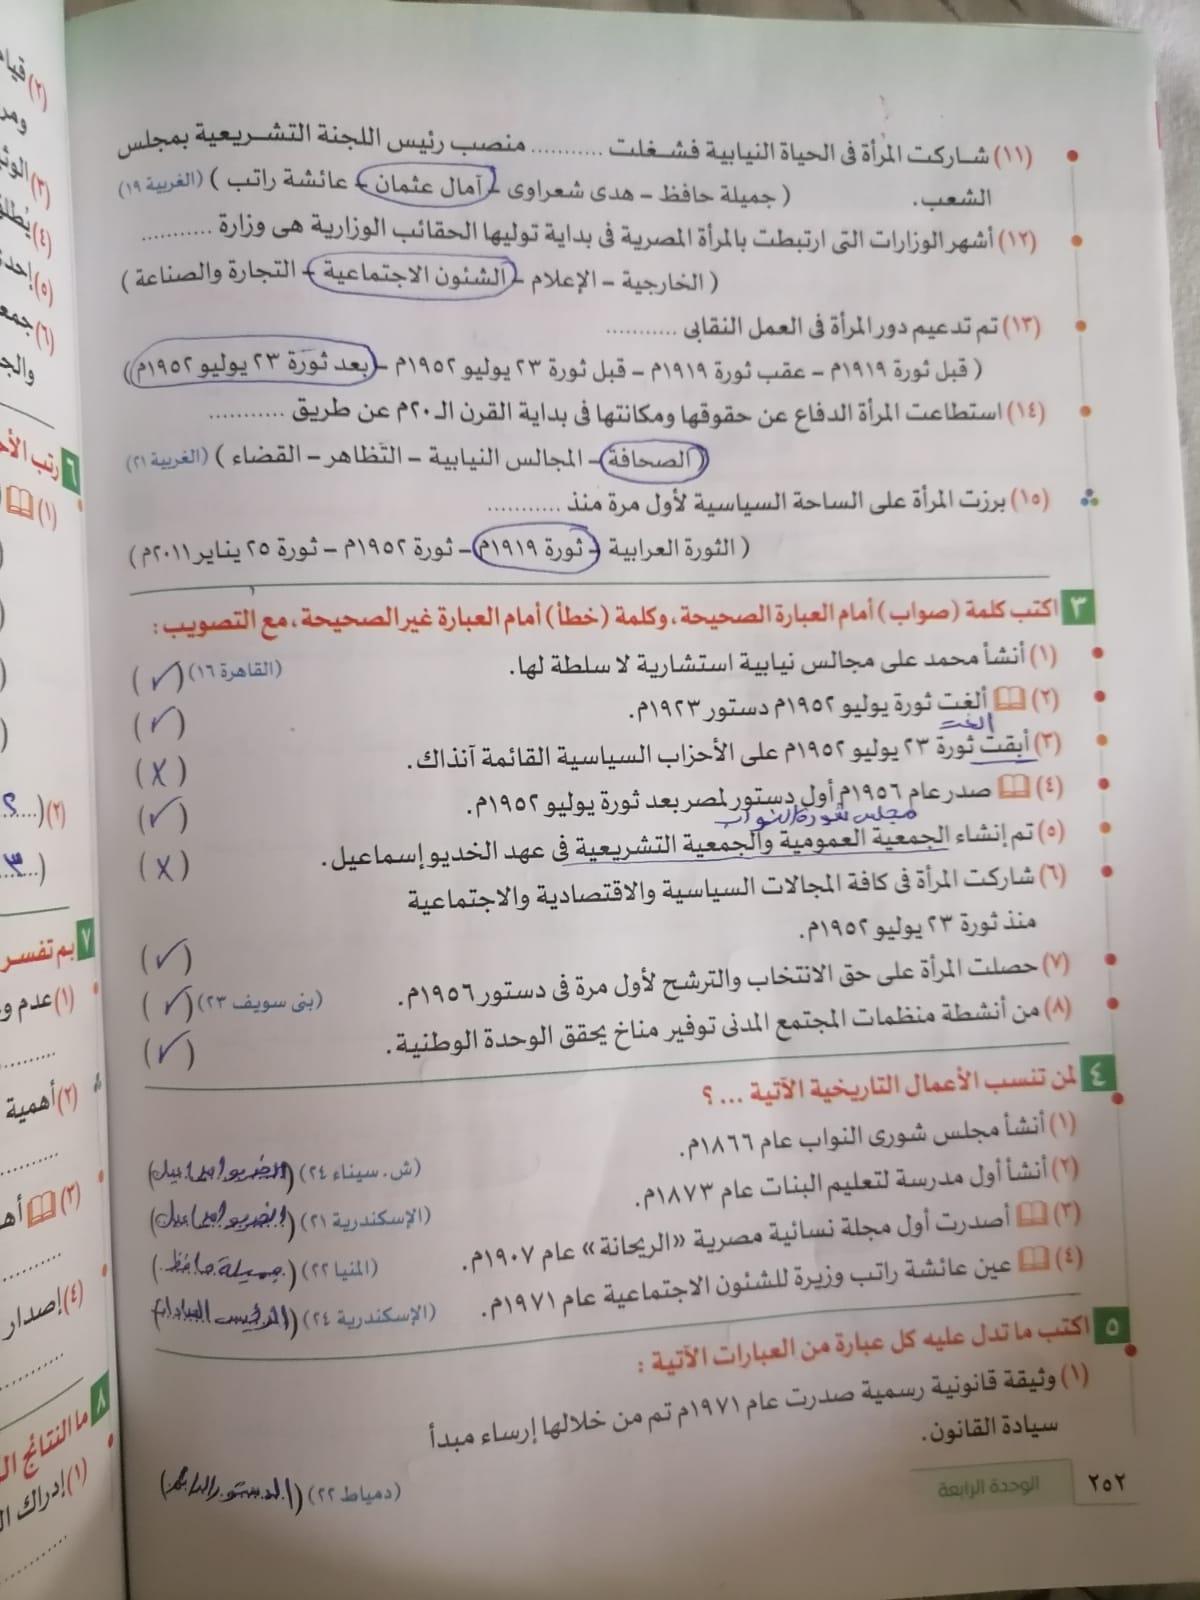 (١١) شاركت المرأة فى الحياة النيابية فشغلت ........... منصب رئيس اللجنة التشريعية بمجلس
الشعب. ( جميلة حافظ – هدى شعراوى – آمال عثمان – عائشة راتب ) (الغربية ١٩)
(١٢) أشهر الوزارات التى ارتبطت بالمرأة المصرية فى بداية توليها الحقائب الوزارية هى وزارة ...........
( الخارجية – الإعلام – الشئون الاجتماعية – التجارة والصناعة )
(١٣) تم تدعيم دور المرأة فى العمل النقابى ...........
( قبل ثورة ١٩١٩م – عقب ثورة ١٩١٩م – قبل ثورة ٢٣ يوليو ١٩٥٢م – بعد ثورة ٢٣ يوليو ١٩٥٢م )
(١٤) استطاعت المرأة الدفاع عن حقوقها ومكانتها فى بداية القرن الـ ٢٠م عن طريق ...........
( الصحافة – المجالس النيابية – التظاهر – القضاء ) (الغربية ٢١)
(١٥) برزت المرأة على الساحة السياسية لأول مرة منذ ...........
( الثورة العرابية – ثورة ١٩١٩م – ثورة ١٩٥٢م – ثورة ٢٥ يناير ٢٠١١م )
٣ اكتب كلمة (صواب) أمام العبارة الصحيحة، وكلمة (خطأ) أمام العبارة غير الصحيحة، مع التصويب :
(١) أنشأ محمد على مجالس نيابية استشارية لا سلطة لها. (القاهرة ١٦) (✓)
(٢) ألغت ثورة يوليو ١٩٥٢م دستور ١٩٢٣م. (✓)
الغت
(٣) أبقت ثورة ٢٣ يوليو ١٩٥٢م على الأحزاب السياسية القائمة آنذاك. (X)
(٤) صدر عام ١٩٥٦م أول دستور لمصر بعد ثورة يوليو ١٩٥٢م. (✓)
مجلس شورة النواب
(٥) تم إنشاء الجمعية العمومية والجمعية التشريعية فى عهد الخديو إسماعيل. (X)
(٦) شاركت المرأة فى كافة المجالات السياسية والاقتصادية والاجتماعية
منذ ثورة ٢٣ يوليو ١٩٥٢م. (✓)
(٧) حصلت المرأة على حق الانتخاب والترشح لأول مرة فى دستور ١٩٥٦م. (بنى سويف ٢٣) (✓)
(٨) من أنشطة منظمات المجتمع المدنى توفير مناخ يحقق الوحدة الوطنية. (✓)
٤ لمن تنسب الأعمال التاريخية الآتية ... ؟
(١) أنشأ مجلس شورى النواب عام ١٨٦٦م. (ش. سيناء ٢٤) (الخديو اسماعيل)
(٢) أنشأ أول مدرسة لتعليم البنات عام ١٨٧٣م. (الإسكندرية ٢١) (الخديو اسماعيل)
(٣) أصدرت أول مجلة نسائية مصرية «الريحانة» عام ١٩٠٧م. (المنيا ٢٢) (جميلة حافظ)
(٤) عين عائشة راتب وزيرة للشئون الاجتماعية عام ١٩٧١م. (الإسكندرية ٢٤) (الرئيس السادات)
٥ اكتب ما تدل عليه كل عبارة من العبارات الآتية :
(١) وثيقة قانونية رسمية صدرت عام ١٩٧١م تم من خلالها إرساء مبدأ
سيادة القانون. (دمياط ٢٢) (الدستور الدائم)
٢٥٢ الوحدة الرابعة
(٢) قيام
ومر
(٣) الوث
(٤) يُطلق
(٥) إحد
(٦) جمع
والج
٦ رتب الأح
(١)
(٢) (...٢
(...٣
٧ بم تفسر
(١) عدم و
(٢) أهمية
(٣) أه
(٤) إصدار
٨ ما النتائج ال
(١) إدراك ال